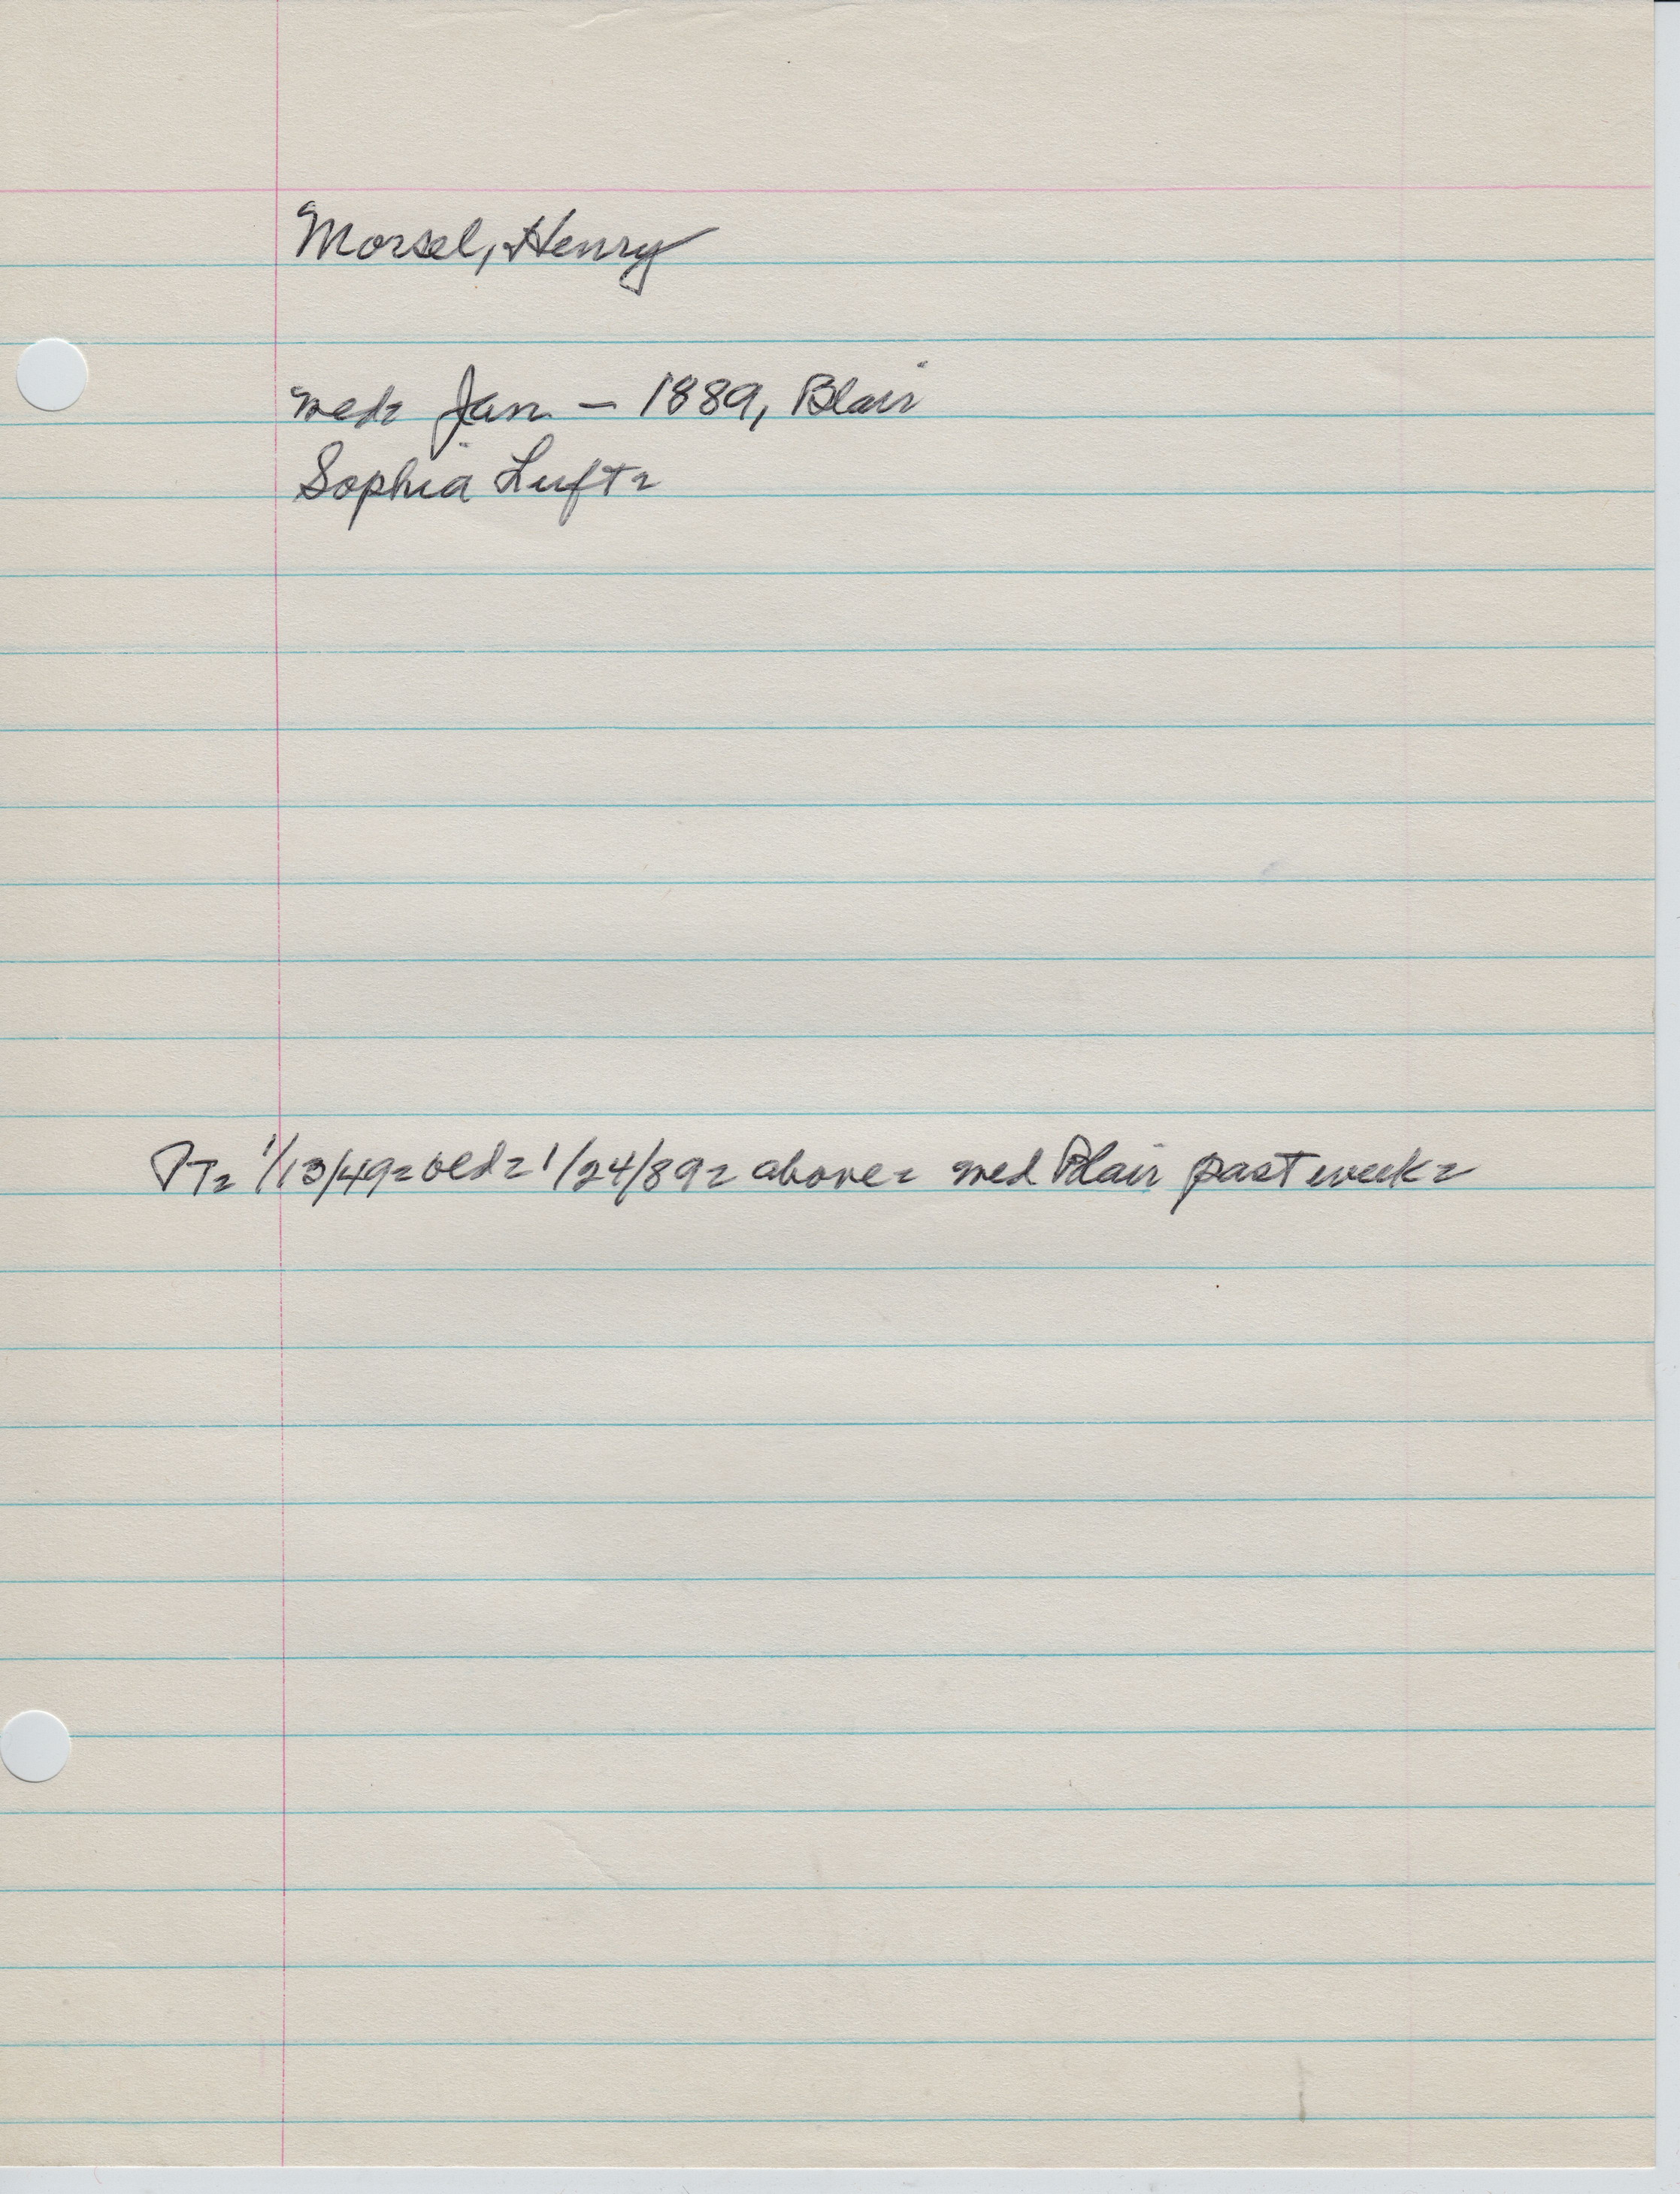 Morsel, Henry
wed: Jan - 1889, Blair
Sophia Luft.
PT. 1/13/49. old. 1/24/89. above. wed Blair past week.